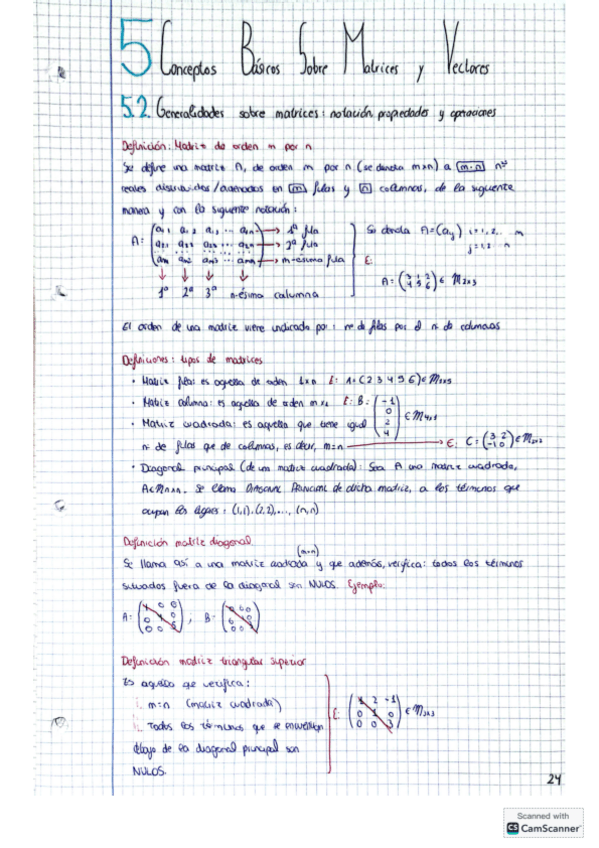 5 Conceptos Básicos Sobre Matrices y Vectores
5.2. Generalidades sobre matrices: notación, propiedades y operaciones
Definición: Matriz de orden m por n
Se define una matriz A, de orden m por n (se denota m×n) a m·n nos
reales distribuidos/ordenados en m filas y n columnas, de la siguiente
manera y con la siguiente notación:
A= (a11 a12 a13 ... a1n) → 1ª fila
a21 a22 a23 ... a2n → 2ª fila
am1 am2 ... amn → m-ésima fila
1ª 2ª 3ª n-ésima columna
Se denota A=(aij) i=1,2,... m
j=1,2... n
E:
A= (3 1 2
4 5 6) ∈ M2x3
El orden de una matriz viene indicado por: nº de filas por el nº de columnas
Definiciones: tipos de matrices
• Matriz fila: es aquella de orden 1xn E: A=(2 3 4 5 6) ∈ M1x5
• Matriz columna: es aquella de orden mx1 E: B= (-1
0
2
4) ∈ M4x1
• Matriz cuadrada: es aquella que tiene igual
nº de filas que de columnas, es decir, m=n → E: C= (3 2
-1 0) ∈ M2x2
• Diagonal principal (de una matriz cuadrada): Sea A una matriz cuadrada,
A∈Mnxn. Se llama DIAGONAL PRINCIPAL de dicha matriz, a los términos que
ocupan los lugares: (1,1), (2,2), ..., (n,n)
Definición matriz diagonal
(m=n)
Se llama así a una matriz cuadrada y que además, verifica: todos los términos
situados fuera de la diagonal son NULOS. Ejemplo:
A= , B=
Definición matriz triangular superior
Es aquella que verifica:
i. m=n (matriz cuadrada)
ii. Todos los términos que se encuentran
debajo de la diagonal principal son
NULOS.
E: (1 2 -1
0 1 0
0 0 3) ∈ M3x3
24
Scanned with
CS CamScanner